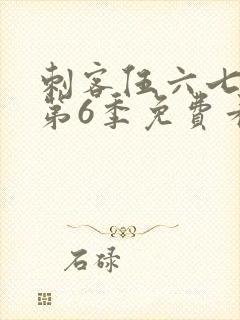 刺客伍六七
第6季免费
石碌